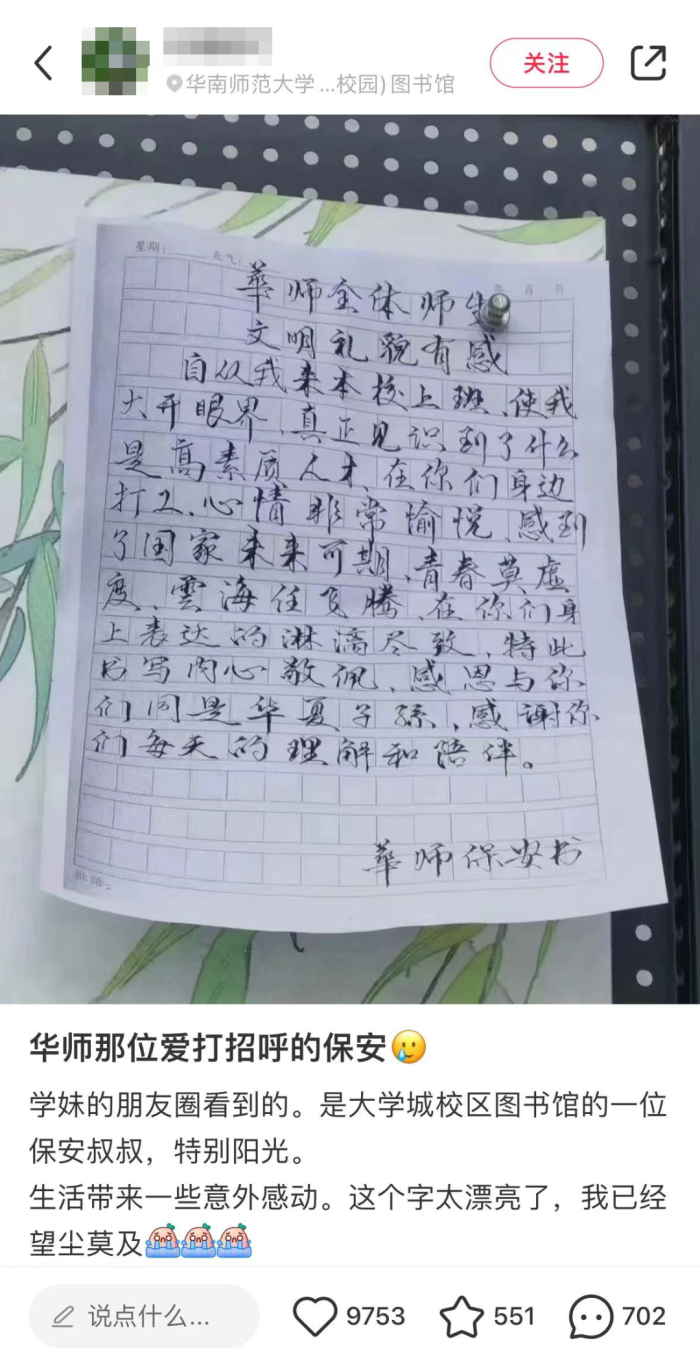 华南师范大学 ...校园) 图书馆
关注
星期: 天气:
年 月 日
華师全体师生
文明礼貌有感
自从我来本校上班、使我
大开眼界、真正见识到了什么
是高素质人才、在你们身边
打工、心情非常愉悦、感到
了国家未来可期、青春莫虚
度、雲海任飞腾、在你们身
上表达的淋漓尽致、特此
书写内心敬佩、感恩与你
们同是华夏子孫、感谢你
们每天的理解和陪伴。
華师保安书
华师那位爱打招呼的保安🥲
学妹的朋友圈看到的。是大学城校区图书馆的一位
保安叔叔，特别阳光。
生活带来一些意外感动。这个字太漂亮了，我已经
望尘莫及
说点什么...
9753
551
702